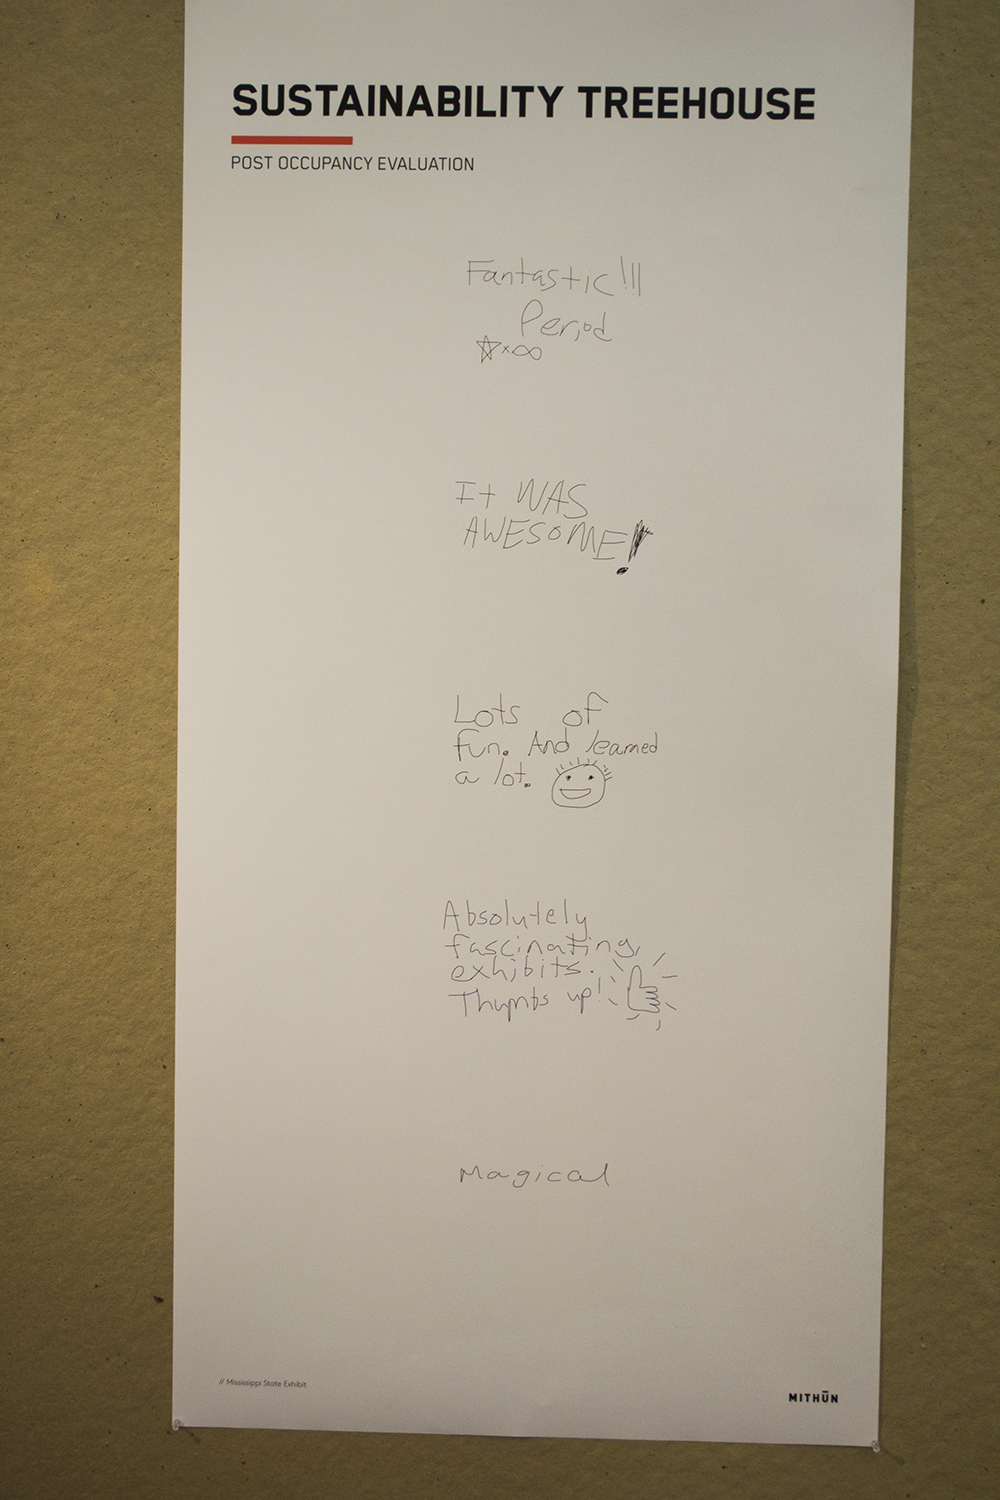 SUSTAINABILITY TREEHOUSE
POST OCCUPANCY EVALUATION
Fantastic!!!
Period
☆×∞
It WAS
AWESOME!
Lots of
fun. And learned
a lot.
Absolutely
fascinating,
exhibits.
Thumbs up!
Magical
// Mississippi State Exhibit
MITHŪN